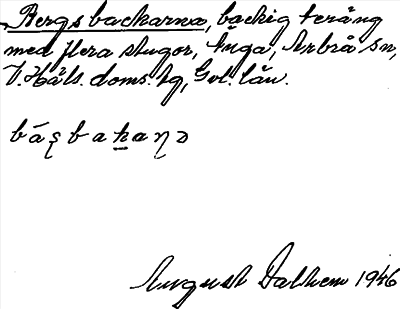 Bergsbackarna, backig teräng
med flera stugor, Änga, Arbrå sn,
V. Häls. doms. hg, Gvl. län.
August Dalhem 1946